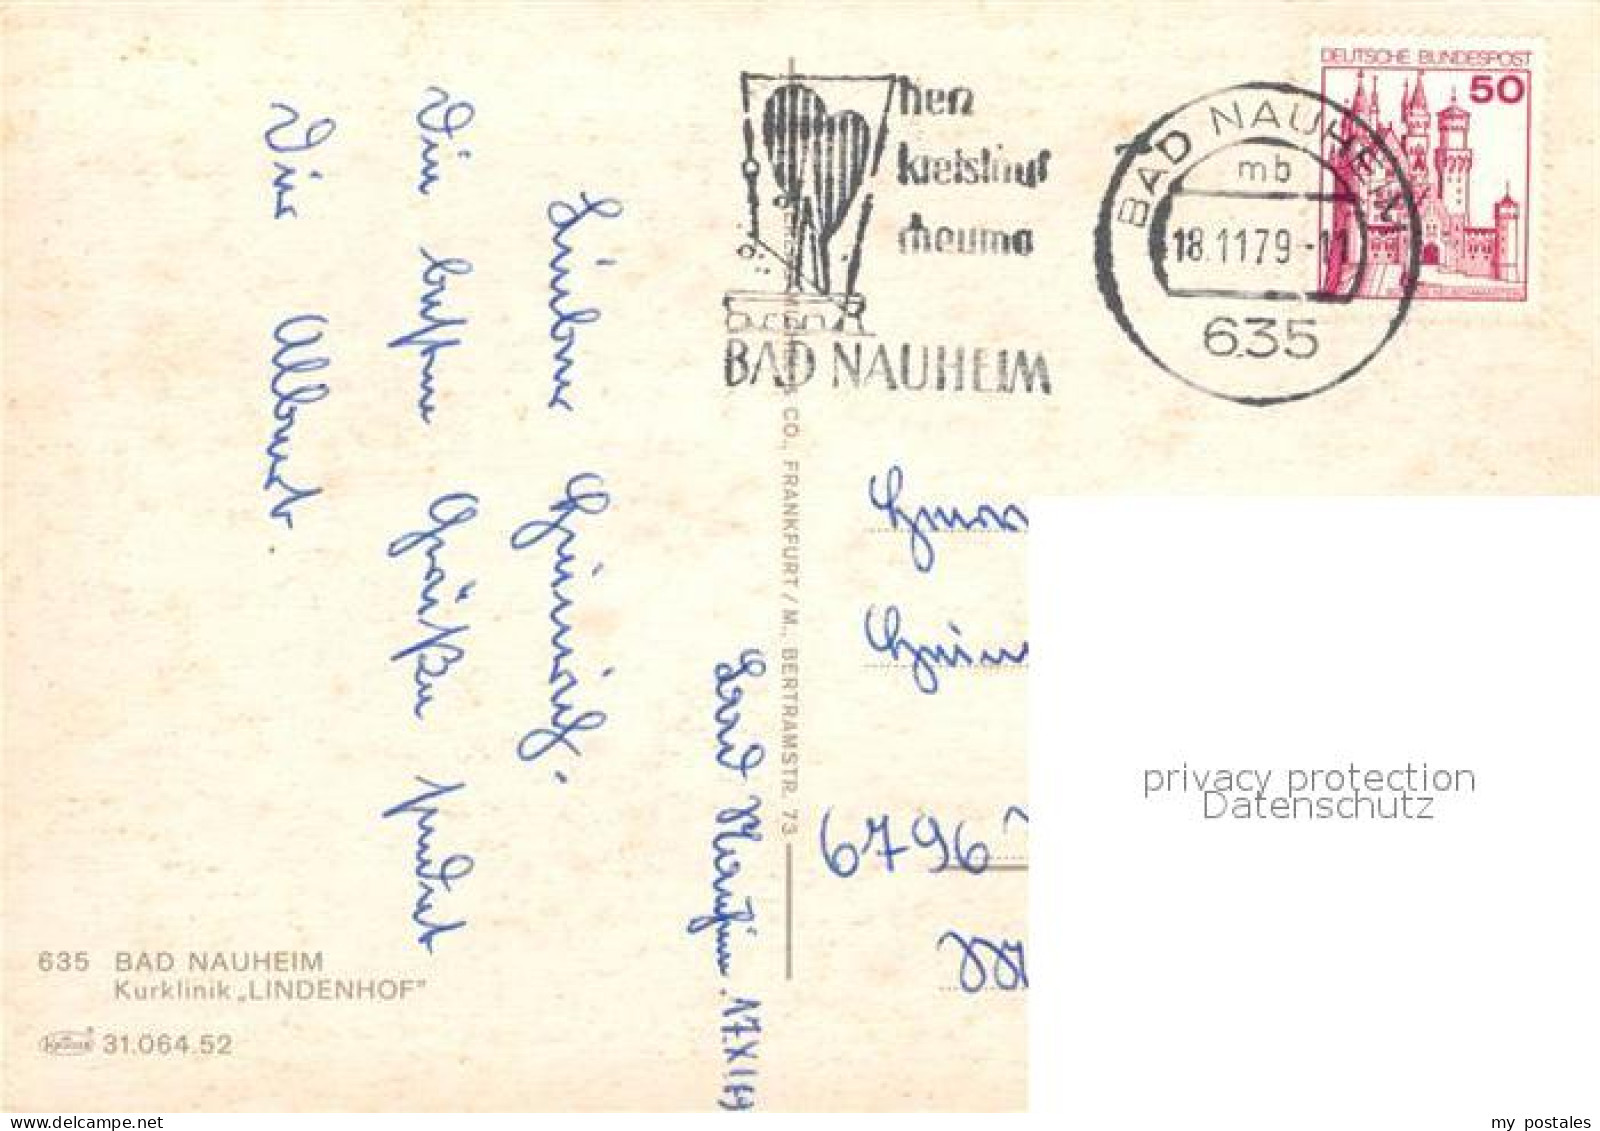 Bad Nauheim. 17.XI.79
Lieber Heinrich.
Die besten Grüße sendet
Dir Albert
635 BAD NAUHEIM
Kurklinik „LINDENHOF"
31.064.52
CO., FRANKFURT/M., BERTRAMSTR. 73
herz
kreislauf
rheuma
BAD NAUHEIM
BAD NAUHEIM
mb
18.11.79-11
635
DEUTSCHE BUNDESPOST
50
Herrn
Hein
6796
privacy protection
Datenschutz
delcampe.net
my_postales